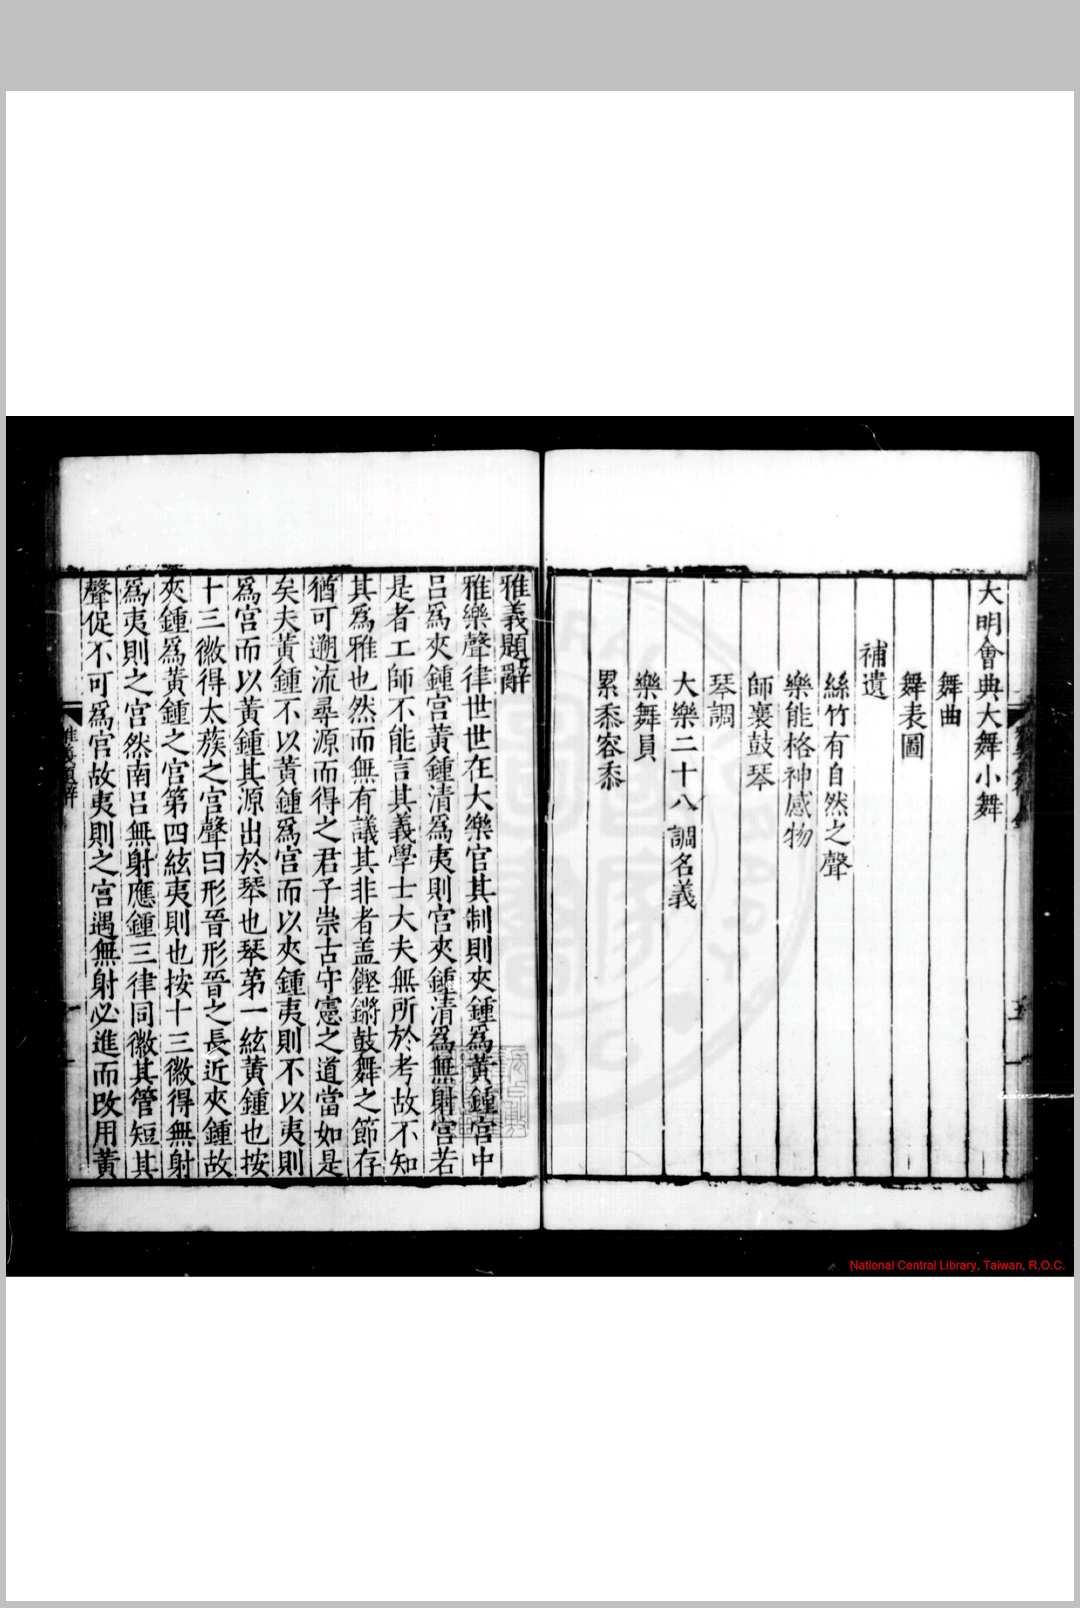 大明會典大舞小舞
舞曲
舞表圖
補遺
絲竹有自然之聲
樂能格神感物
師襄鼓琴
琴調
大樂二十八調名義
樂舞員
累黍容黍
雅義題辭
雅樂聲律世世在大樂官其制則夾鍾爲黃鍾宮中
呂爲夾鍾宮黃鍾清爲夷則宮夾鍾清爲無射宮若
是者工師不能言其義學士大夫無所於考故不知
其爲雅也然而無有議其非者蓋鏗鏘鼓舞之節存
猶可遡流尋源而得之君子崇古守憲之道當如是
矣夫黃鍾不以黃鍾爲宮而以夾鍾夷則不以夷則
爲宮而以黃鍾其源出於琴也琴第一絃黃鍾也按
十三徽得太蔟之宮聲曰形晉形晉之長近夾鍾故
夾鍾爲黃鍾之宮第四絃夷則也按十三徽得無射
爲夷則之宮然南呂無射應鍾三律同徽其管短其
聲促不可爲宮故夷則之宮遇無射必進而改用黃
雅義題辭
五
一
National Central Library, Taiwan, R.O.C.